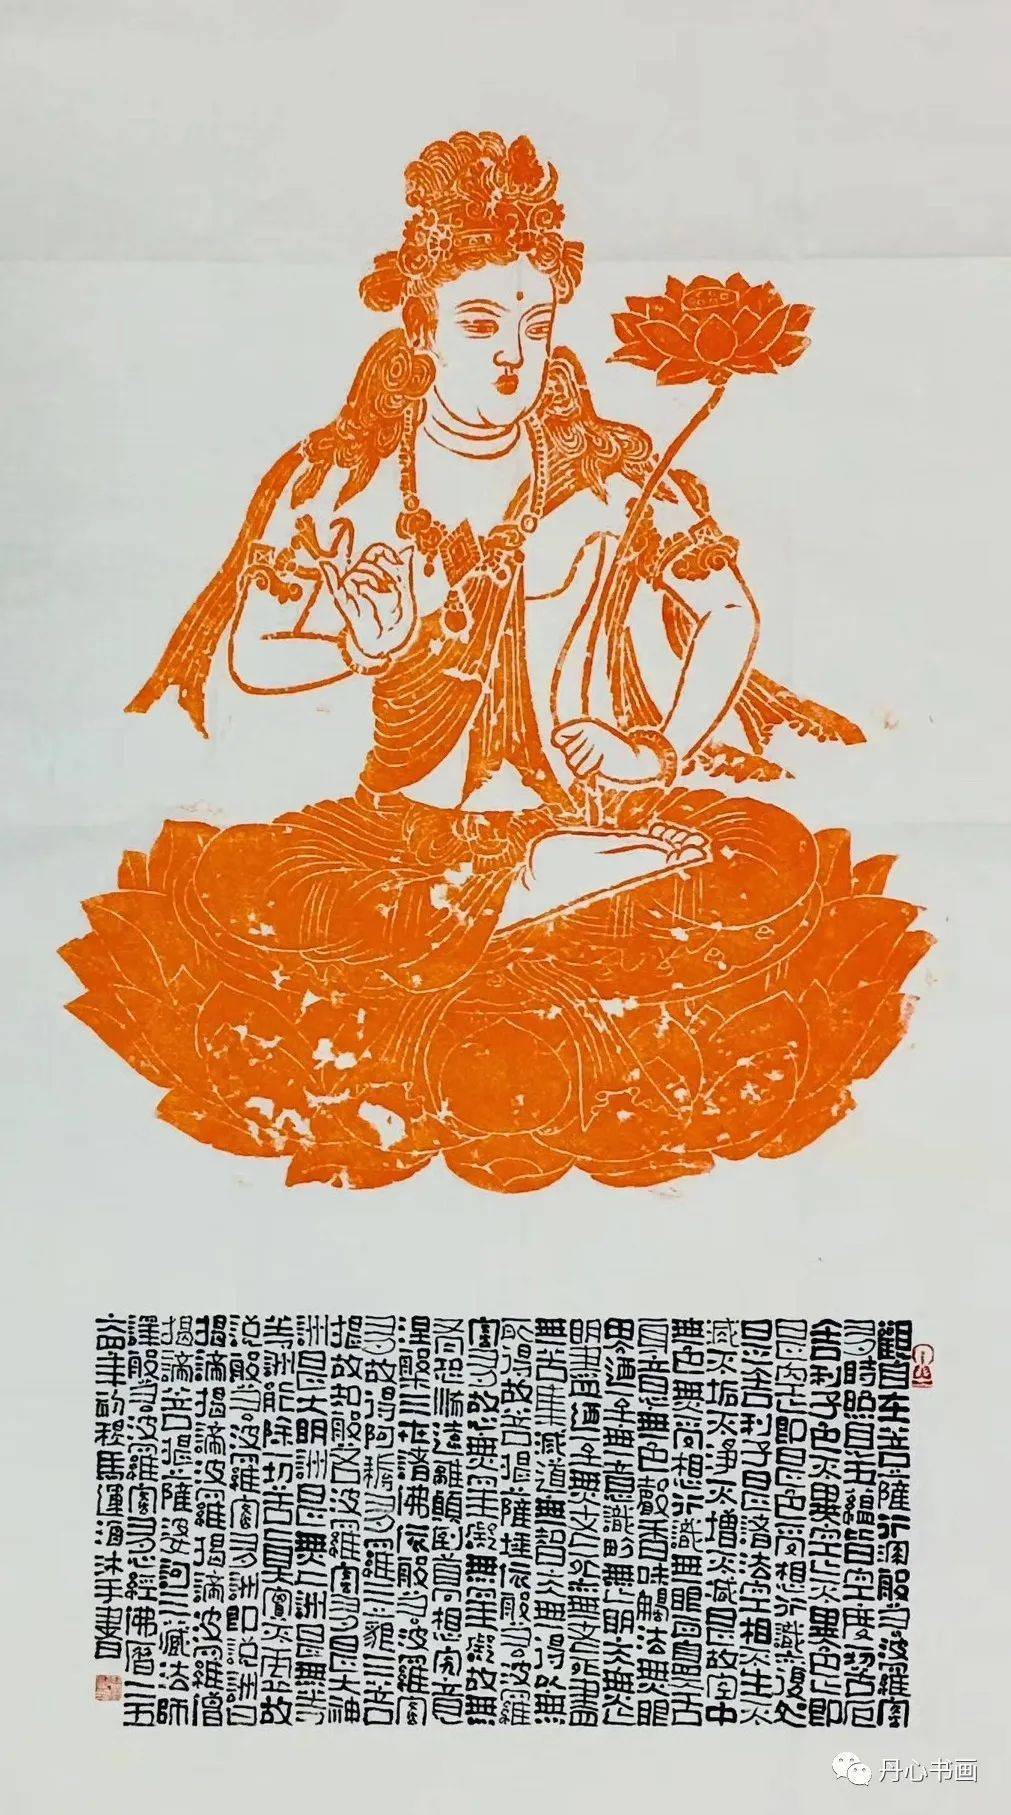 觀自在菩薩行深般若波羅蜜
多時照見五蘊皆空度一切苦厄
舍利子色不異空空不異色色即
是空空即是色受想行識亦復如
是舍利子是諸法空相不生不
滅不垢不淨不增不減是故空中
無色無受想行識無眼耳鼻舌
身意無色聲香味觸法無眼
界乃至無意識界無無明亦無無
明盡乃至無老死亦無老死盡
無苦集滅道無智亦無得以無
所得故菩提薩埵依般若波羅
蜜多故心無罣礙無罣礙故無
有恐怖遠離顛倒夢想究竟
涅槃三世諸佛依般若波羅蜜
多故得阿耨多羅三藐三菩
提故知般若波羅蜜多是大神
咒是大明咒是無上咒是無等
等咒能除一切苦真實不虛故
說般若波羅蜜多咒即說咒曰
揭諦揭諦波羅揭諦波羅僧
揭諦菩提薩婆訶三藏法師
譯般若波羅蜜多心經佛曆二五
年馬運海沐手書
丹心书画